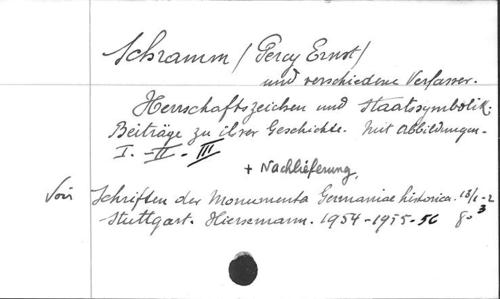 Schramm / Percy Ernst /
und verschiedene Verfasser.
Herrschaftszeichen und Staatssymbolik.
Beiträge zu ihrer Geschichte. Mit Abbildungen.
I. - II - III
+ Nachlieferung.
Schriften der Monumenta Germaniae historica. 13/1-2
3
Stuttgart. Hiersemann. 1954-1955-56 8.°